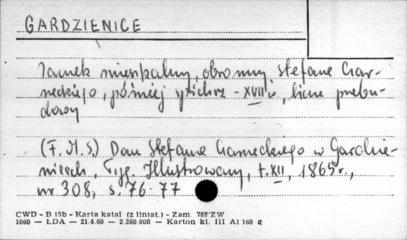 GARDZIENICE
Zamek mieszkalny, obronny, Stefana Czar-
neckiego, później spichrz - XVII w., liczne przebu-
dowy
(F. M. S.) Dom Stefana Czarneckiego w Gardzie-
nicach, Tyg. Illustrowany, t. XII, 1865 r.,
nr 308, s. 76-77
CWD - B 15b - Karta katal (z liniat.) - Zam. 788 ZW
1060 — ŁDA — 21.4.60 — 2.360.000 — Karton kl. III A1 160 g